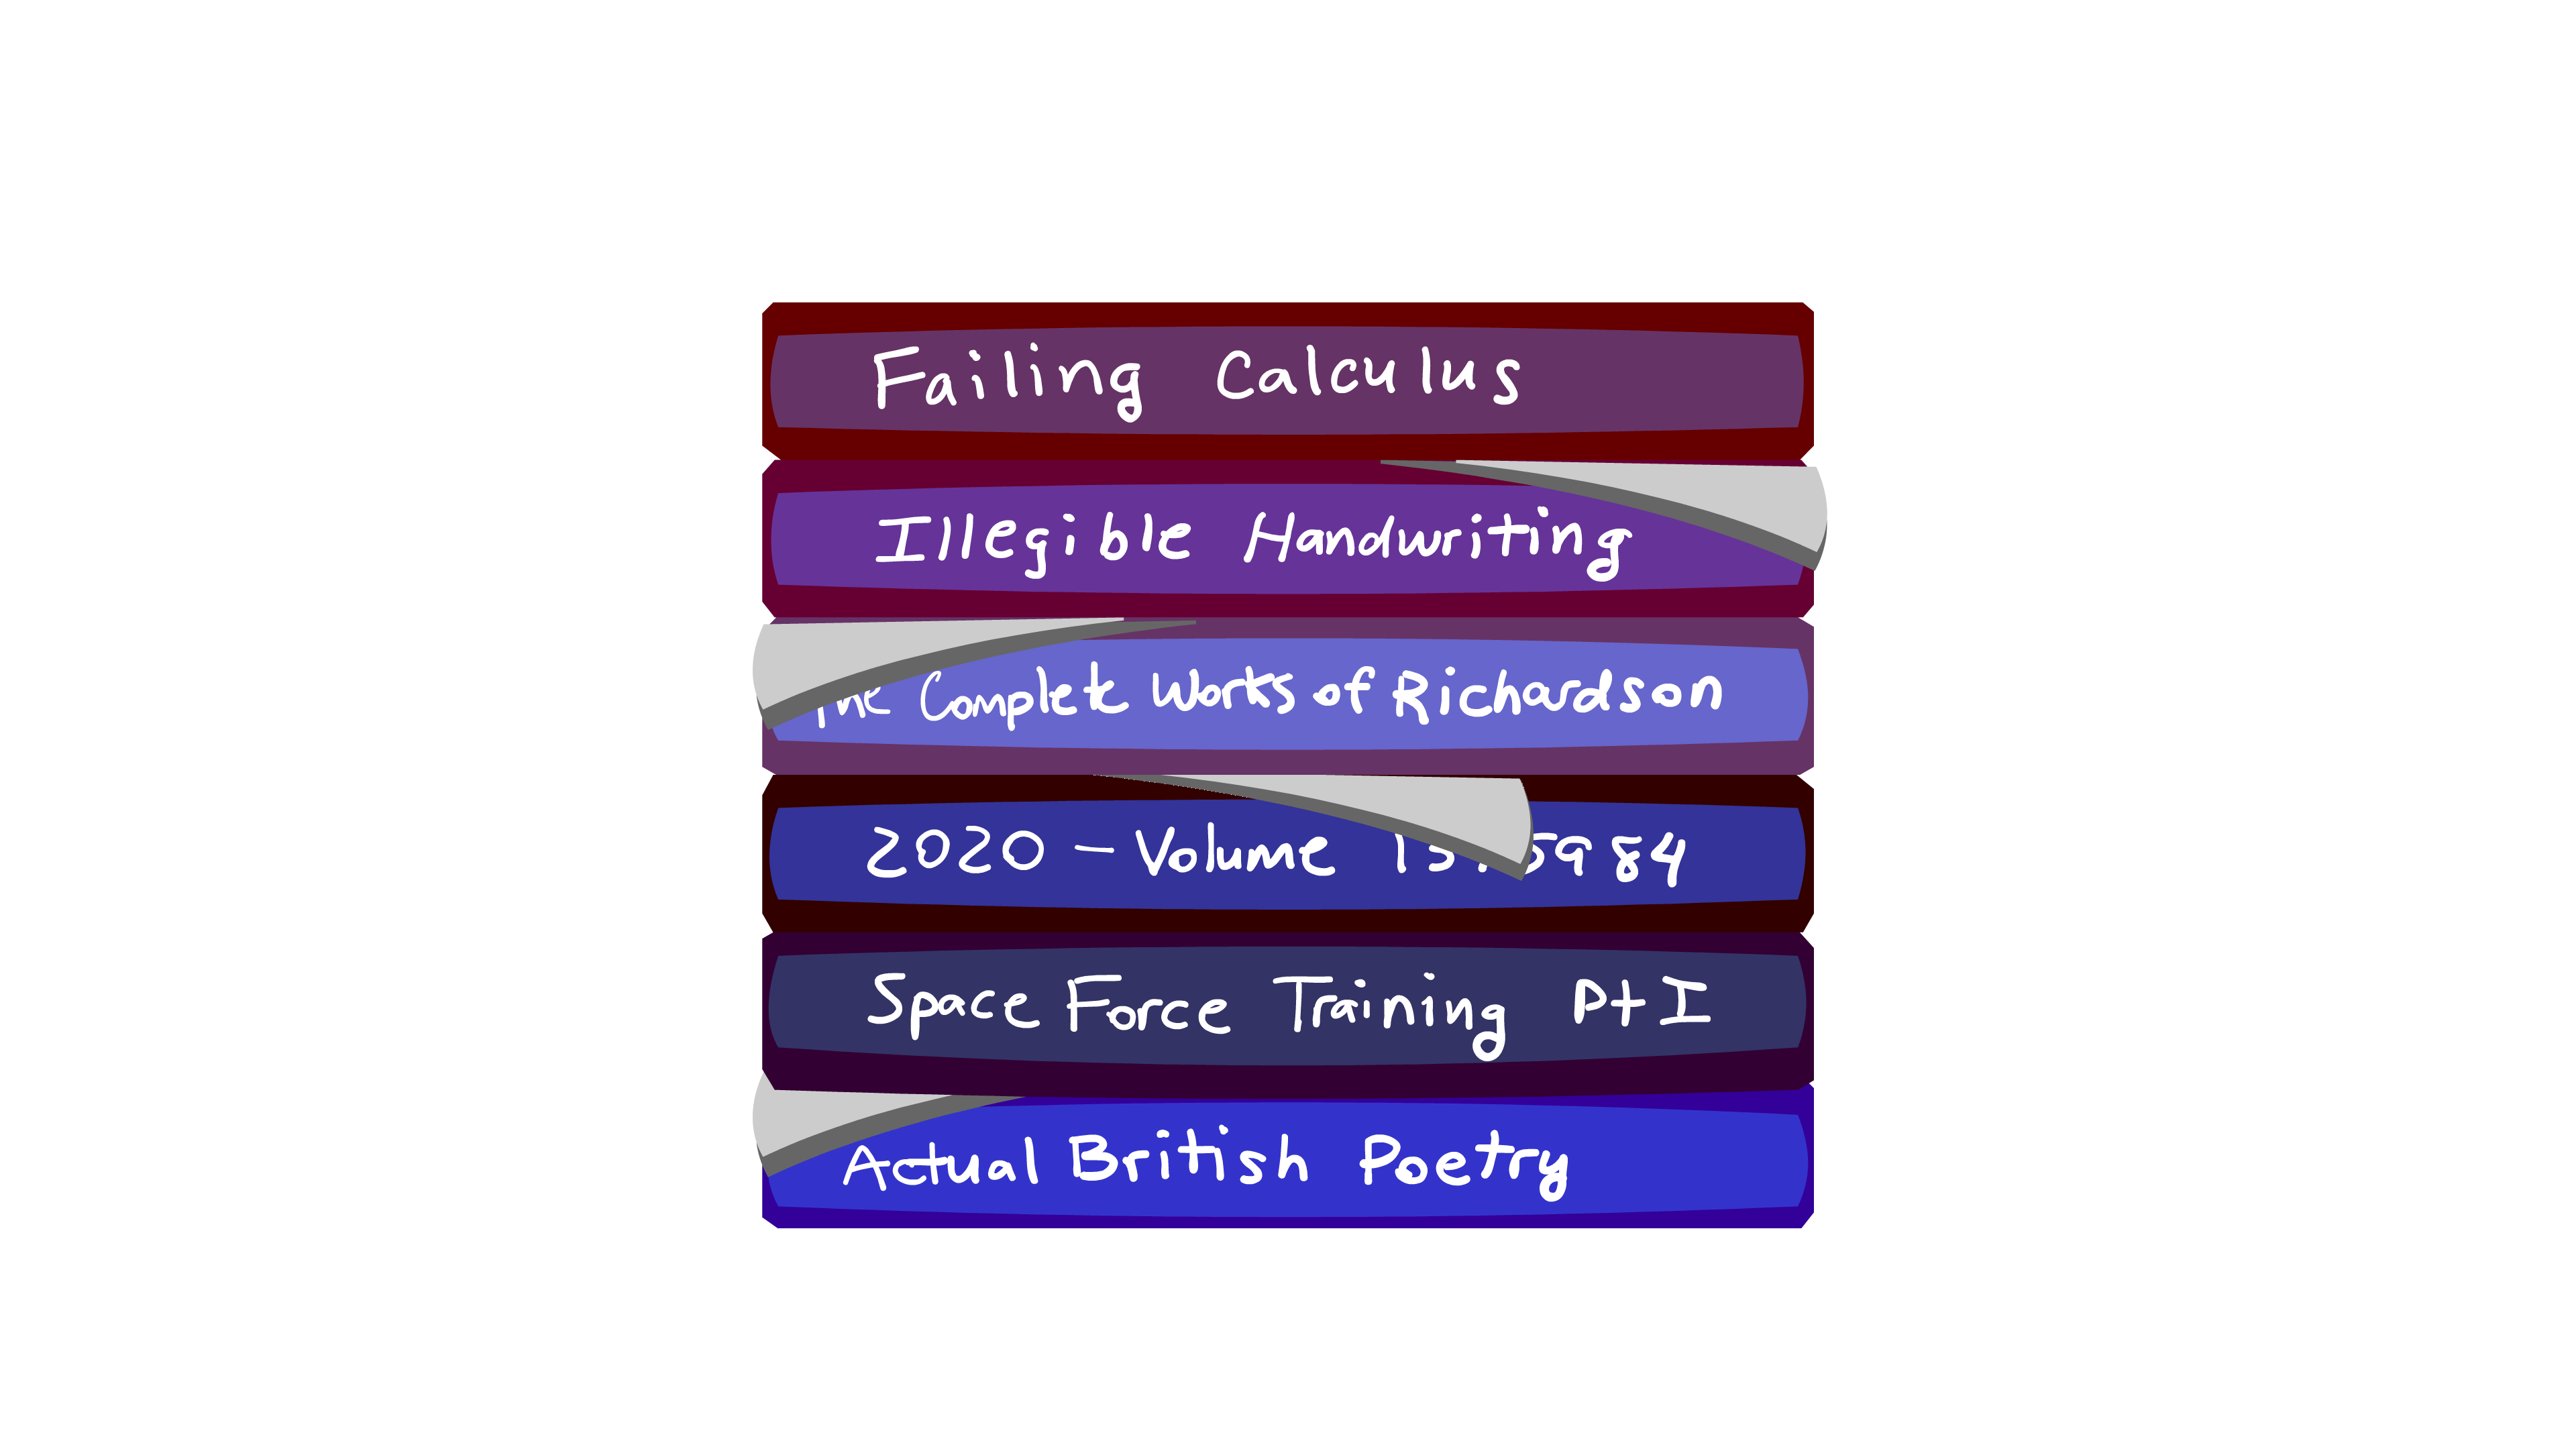 Failing Calculus
Illegible Handwriting
The Complete Works of Richardson
2020 - Volume
Space Force Training Pt I
Actual British Poetry